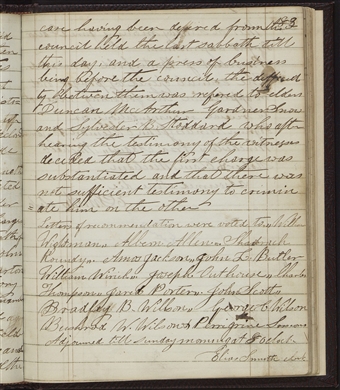 case having been defered from the
council held the last sabbath till
this day, and a press of business
being before the council, the
between them was refered to elders
Duncan McArthur Gardner Snow
and Sylvester B. Stoddard who after
hearing the testimony of the witnesses
decided that the first charge was
substantiated and that there was
not sufficient testimony to crimin
ate him on the other
Letters of recommendation were voted to William
Wightman Albern Allen Shadrach
Roundy Amos Jackson John L. Butler
William Winch Joseph Outhouse Charles
Thompson Jared Porter John Scott
Bradley B. Wilson George C Wilson
W. Wilson Perrigrine Sessions
Adjourned till Sunday morning at 8 oclk.
Elias Smith clerk